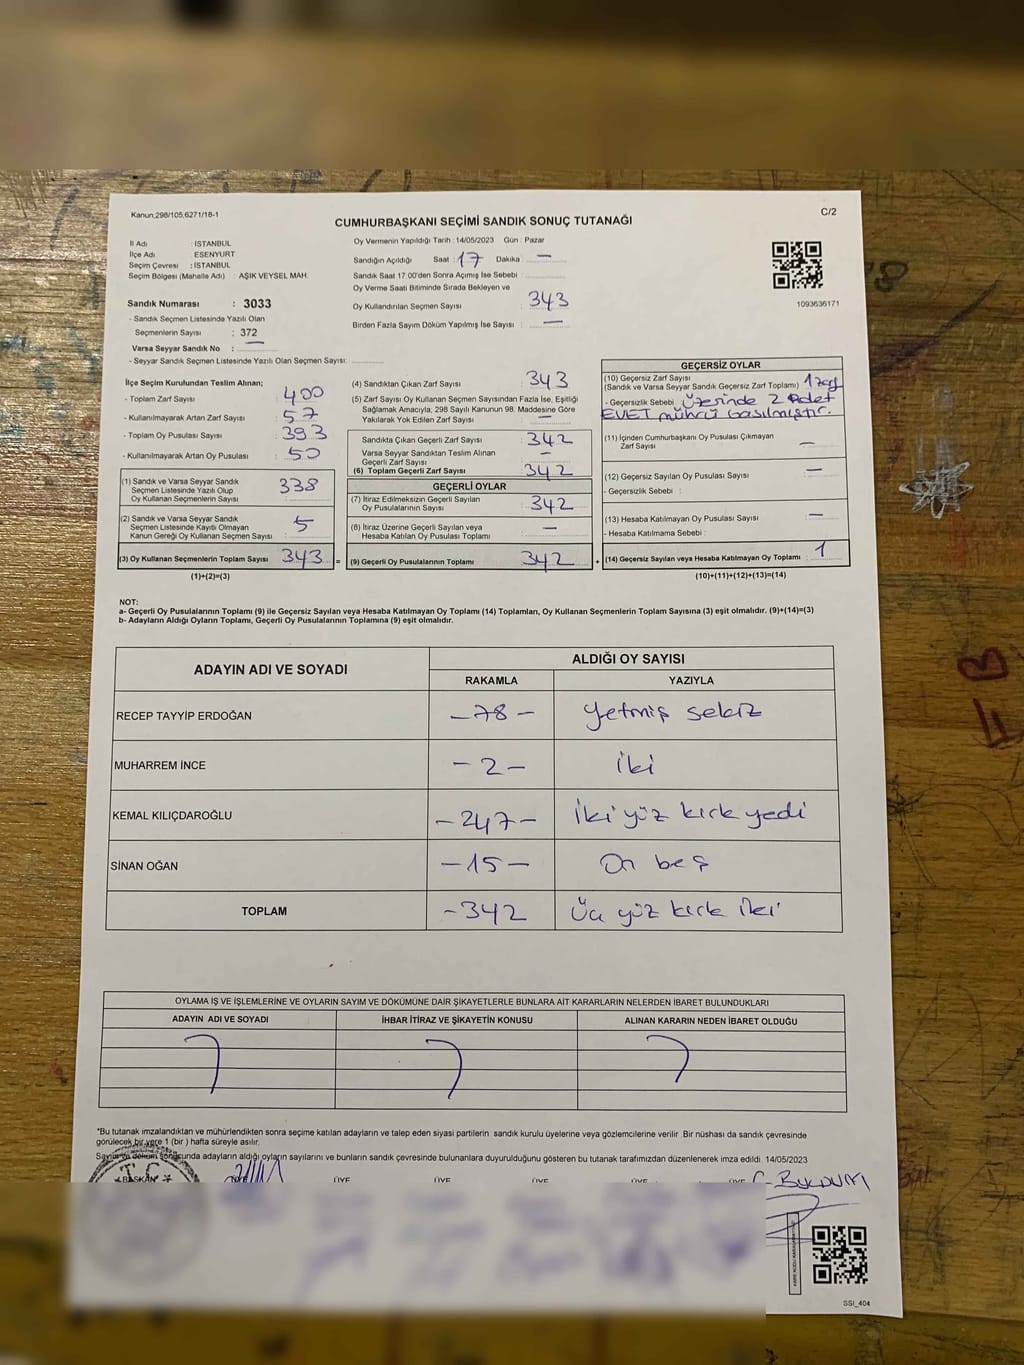 Kanun,298/105,6271/18-1
C/2
CUMHURBAŞKANI SEÇİMİ SANDIK SONUÇ TUTANAĞI
İl Adı : İSTANBUL
İlçe Adı ESENYURT
Seçim Çevresi : İSTANBUL
Seçim Bölgesi (Mahalle Adı) : AŞIK VEYSEL MAH.
Sandık Numarası : 3033
- Sandık Seçmen Listesinde Yazılı Olan
Seçmenlerin Sayısı : 372
Varsa Seyyar Sandık No : —
- Seyyar Sandık Seçmen Listesinde Yazılı Olan Seçmen Sayısı:
Oy Vermenin Yapıldığı Tarih : 14/05/2023 Gün : Pazar
Sandığın Açıldığı Saat : 17 Dakika : —
Sandık Saat 17.00'den Sonra Açımış İse Sebebi :
Oy Verme Saati Bitiminde Sırada Bekleyen ve
Oy Kullandırılan Seçmen Sayısı : 343
Birden Fazla Sayım Döküm Yapılmış İse Sayısı : —
1093636171
İlçe Seçim Kurulundan Teslim Alınan;
- Toplam Zarf Sayısı : 400
- Kullanılmayarak Artan Zarf Sayısı : 57
- Toplam Oy Pusulası Sayısı : 393
- Kullanılmayarak Artan Oy Pusulası : 50
(1) Sandık ve Varsa Seyyar Sandık
Seçmen Listesinde Yazılı Olup
Oy Kullanan Seçmenlerin Sayısı : 338
(2) Sandık ve Varsa Seyyar Sandık
Seçmen Listesinde Kayıtlı Olmayan
Kanun Gereği Oy Kullanan Seçmen Sayısı : 5
(3) Oy Kullanan Seçmenlerin Toplam Sayısı : 343 =
(1)+(2)=(3)
(4) Sandıktan Çıkan Zarf Sayısı : 343
(5) Zarf Sayısı Oy Kullanan Seçmen Sayısından Fazla İse, Eşitliği
Sağlamak Amacıyla, 298 Sayılı Kanunun 98. Maddesine Göre
Yakılarak Yok Edilen Zarf Sayısı : —
Sandıkta Çıkan Geçerli Zarf Sayısı : 342
Varsa Seyyar Sandıktan Teslim Alınan
Geçerli Zarf Sayısı : —
(6) Toplam Geçerli Zarf Sayısı : 342
GEÇERLİ OYLAR
(7) İtiraz Edilmeksizin Geçerli Sayılan
Oy Pusulalarının Sayısı : 342
(8) İtiraz Üzerine Geçerli Sayılan veya
Hesaba Katılan Oy Pusulası Toplamı : —
(9) Geçerli Oy Pusulalarının Toplamı : 342 +
GEÇERSİZ OYLAR
(10) Geçersiz Zarf Sayısı
(Sandık ve Varsa Seyyar Sandık Geçersiz Zarf Toplamı) : 1 zarf
- Geçersizlik Sebebi : Üzerinde 2 adet
EVET mührü basılmıştır.
(11) İçinden Cumhurbaşkanı Oy Pusulası Çıkmayan
Zarf Sayısı : —
(12) Geçersiz Sayılan Oy Pusulası Sayısı : —
- Geçersizlik Sebebi :
(13) Hesaba Katılmayan Oy Pusulası Sayısı : —
- Hesaba Katılmama Sebebi :
(14) Geçersiz Sayılan veya Hesaba Katılmayan Oy Toplamı : 1
(10)+(11)+(12)+(13)=(14)
NOT:
a- Geçerli Oy Pusulalarının Toplamı (9) ile Geçersiz Sayılan veya Hesaba Katılmayan Oy Toplamı (14) Toplamları, Oy Kullanan Seçmenlerin Toplam Sayısına (3) eşit olmalıdır. (9)+(14)=(3)
b- Adayların Aldığı Oyların Toplamı, Geçerli Oy Pusulalarının Toplamına (9) eşit olmalıdır.
ADAYIN ADI VE SOYADI ALDIĞI OY SAYISI
RAKAMLA YAZIYLA
RECEP TAYYİP ERDOĞAN -78- yetmiş sekiz
MUHARREM İNCE -2- iki
KEMAL KILIÇDAROĞLU -247- iki yüz kırk yedi
SİNAN OĞAN -15- On beş
TOPLAM -342 Üç yüz kırk iki
OYLAMA İŞ VE İŞLEMLERİNE VE OYLARIN SAYIM VE DÖKÜMÜNE DAİR ŞİKAYETLERLE BUNLARA AİT KARARLARIN NELERDEN İBARET BULUNDUKLARI
ADAYIN ADI VE SOYADI İHBAR İTİRAZ VE ŞİKAYETİN KONUSU ALINAN KARARIN NEDEN İBARET OLDUĞU
*Bu tutanak imzalandıktan ve mühürlendikten sonra seçime katılan adayların ve talep eden siyasi partilerin sandık kurulu üyelerine veya gözlemcilerine verilir. Bir nüshası da sandık çevresinde
görülecek bir yere 1 (bir ) hafta süreyle asılır.
Sayım ve döküm sonucunda adayların aldığı oyların sayılarını ve bunların sandık çevresinde bulunanlara duyurulduğunu gösteren bu tutanak tarafımızdan düzenlenerek imza edildi. 14/05/2023
T.C.
BAŞKAN ÜYE ÜYE ÜYE ÜYE ÜYE ÜYE
SSI_404
F B